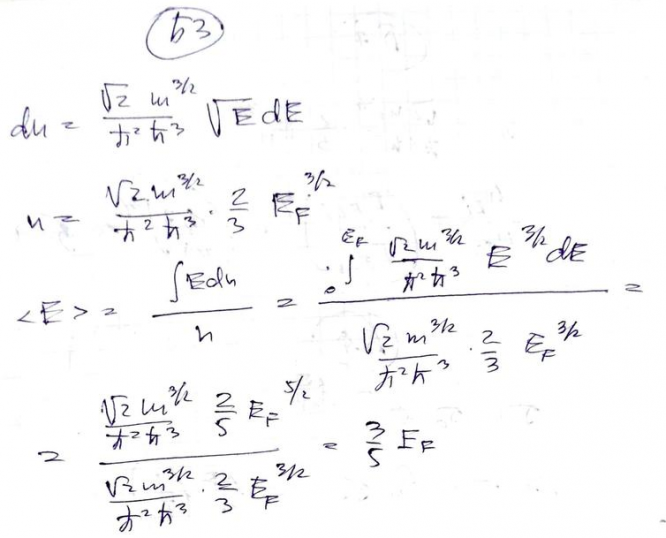 53
dn = √2 m^3/2 / π² ħ³ √E dE
n = √2 m^3/2 / π² ħ³ · 2/3 E_F^3/2
<E> = ∫E dn / n = ₀∫^E_F √2 m^3/2 / π² ħ³ E^3/2 dE / √2 m^3/2 / π² ħ³ · 2/3 E_F^3/2 =
= √2 m^3/2 / π² ħ³ 2/5 E_F^5/2 / √2 m^3/2 / π² ħ³ · 2/3 E_F^3/2 = 3/5 E_F